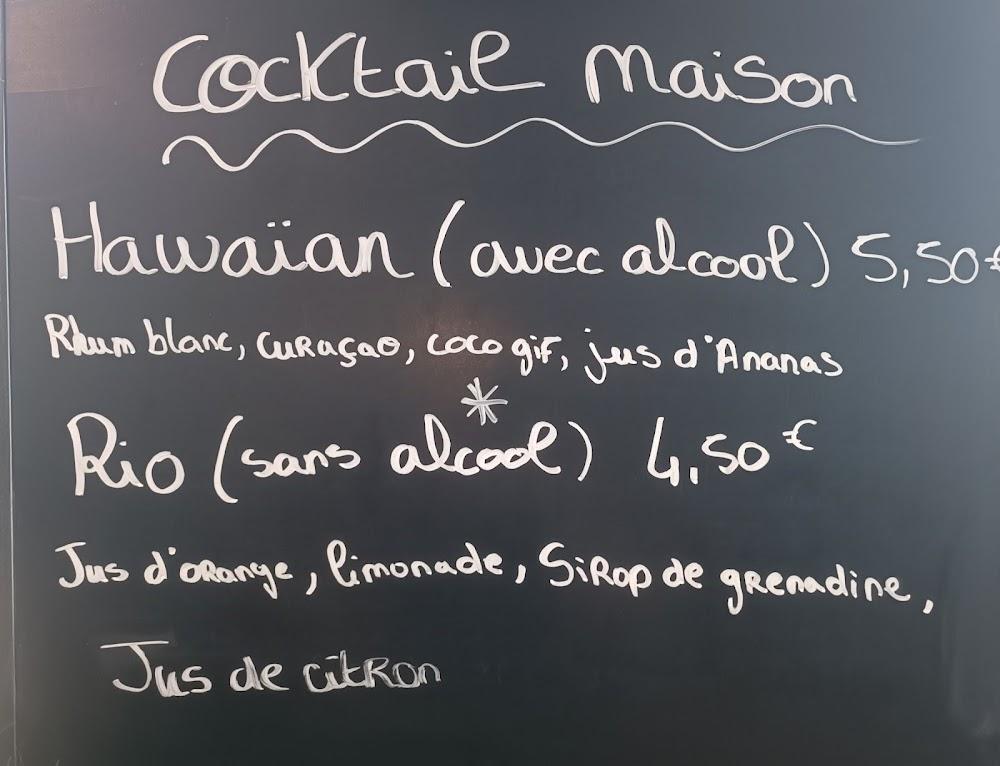 Cocktail Maison
Hawaïan (avec alcool) 5,50€
Rhum blanc, curaçao, coco gif, jus d'Ananas
*
Rio (sans alcool) 4,50€
Jus d'orange, limonade, Sirop de grenadine,
Jus de citron